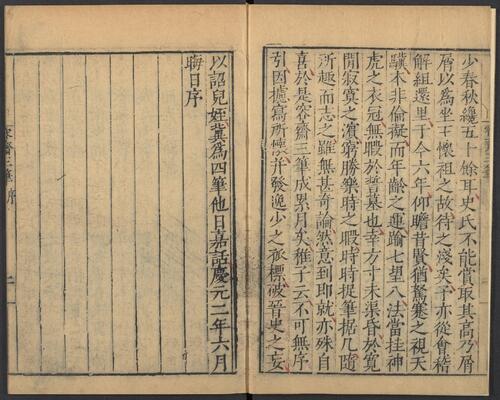 少春秋纔五十餘耳史氏不能賞取其高乃屑
屑以爲坐王懷祖之故待之淺矣予亦從會稽
解組還里于今六年仰瞻昔賢猶駑蹇之視天
驥本非倫擬而年齡之運踰七望八法當挂神
虎之衣冠無暇於誓墓也幸方寸未渠昏於寬
閒寂寞之濱窮勝樂時之暇時時捉筆據几隨
所趣而志之雖無甚奇論然意到即就亦殊自
喜於是容齋三筆成累月矣稚子云不可無序
引因攄寫所懷并發逸少之孤標破晉史之妄
以詔兒姪冀爲四筆他日嘉話慶元二年六月
晦日序
容齋三筆 序
二